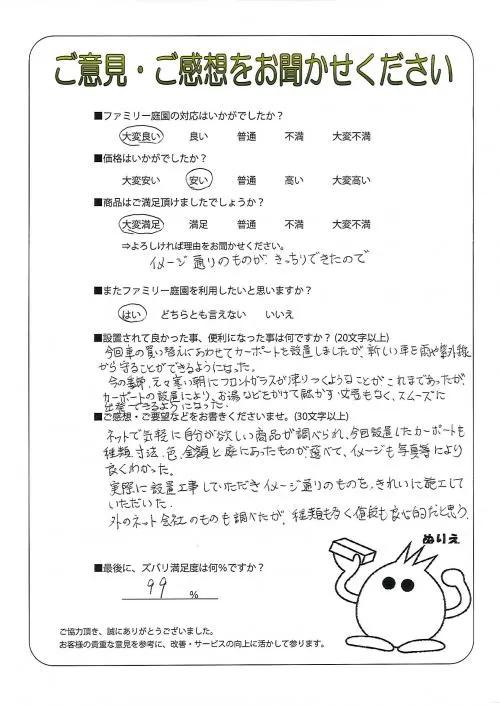 ご意見・ご感想をお聞かせください
■ファミリー庭園の対応はいかがでしたか？
大変良い 良い 普通 不満 大変不満
■価格はいかがでしたか？
大変安い 安い 普通 高い 大変高い
■商品はご満足頂けましたでしょうか？
大変満足 満足 普通 不満 大変不満
⇒よろしければ理由をお聞かせください。
イメージ通りのものが、きっちりできたので
■またファミリー庭園を利用したいと思いますか？
はい どちらとも言えない いいえ
■設置されて良かった事、便利になった事は何ですか？（20文字以上）
今回車の買い替えにあわせてカーポートを設置しましたが、新しい車を雨や紫外線
から守ることができるようになった。
今の季節、寒い朝にフロントガラスが凍りつくようなことがこれまであったが、
カーポートの設置により、お湯などをかけて融かす必要もなく、スムーズに
出発できるようになった。
■ご感想・ご要望などをお書きくださいませ。（30文字以上）
ネットで気軽に自分が欲しい商品が調べられ、今回設置したカーポートも
種類、寸法、色、金額と庭にあったものが選べて、イメージも写真等により
良くわかった。
実際に設置工事していただきイメージ通りのものを、きれいに施工して
いただいた。
外のネット会社のものも調べたが、種類も多く値段も良心的だと思う。
ぬりえ
■最後に、ズバリ満足度は何％ですか？
99 %
ご協力頂き、誠にありがとうございました。
お客様の貴重な意見を参考に、改善・サービスの向上に活かして参ります。